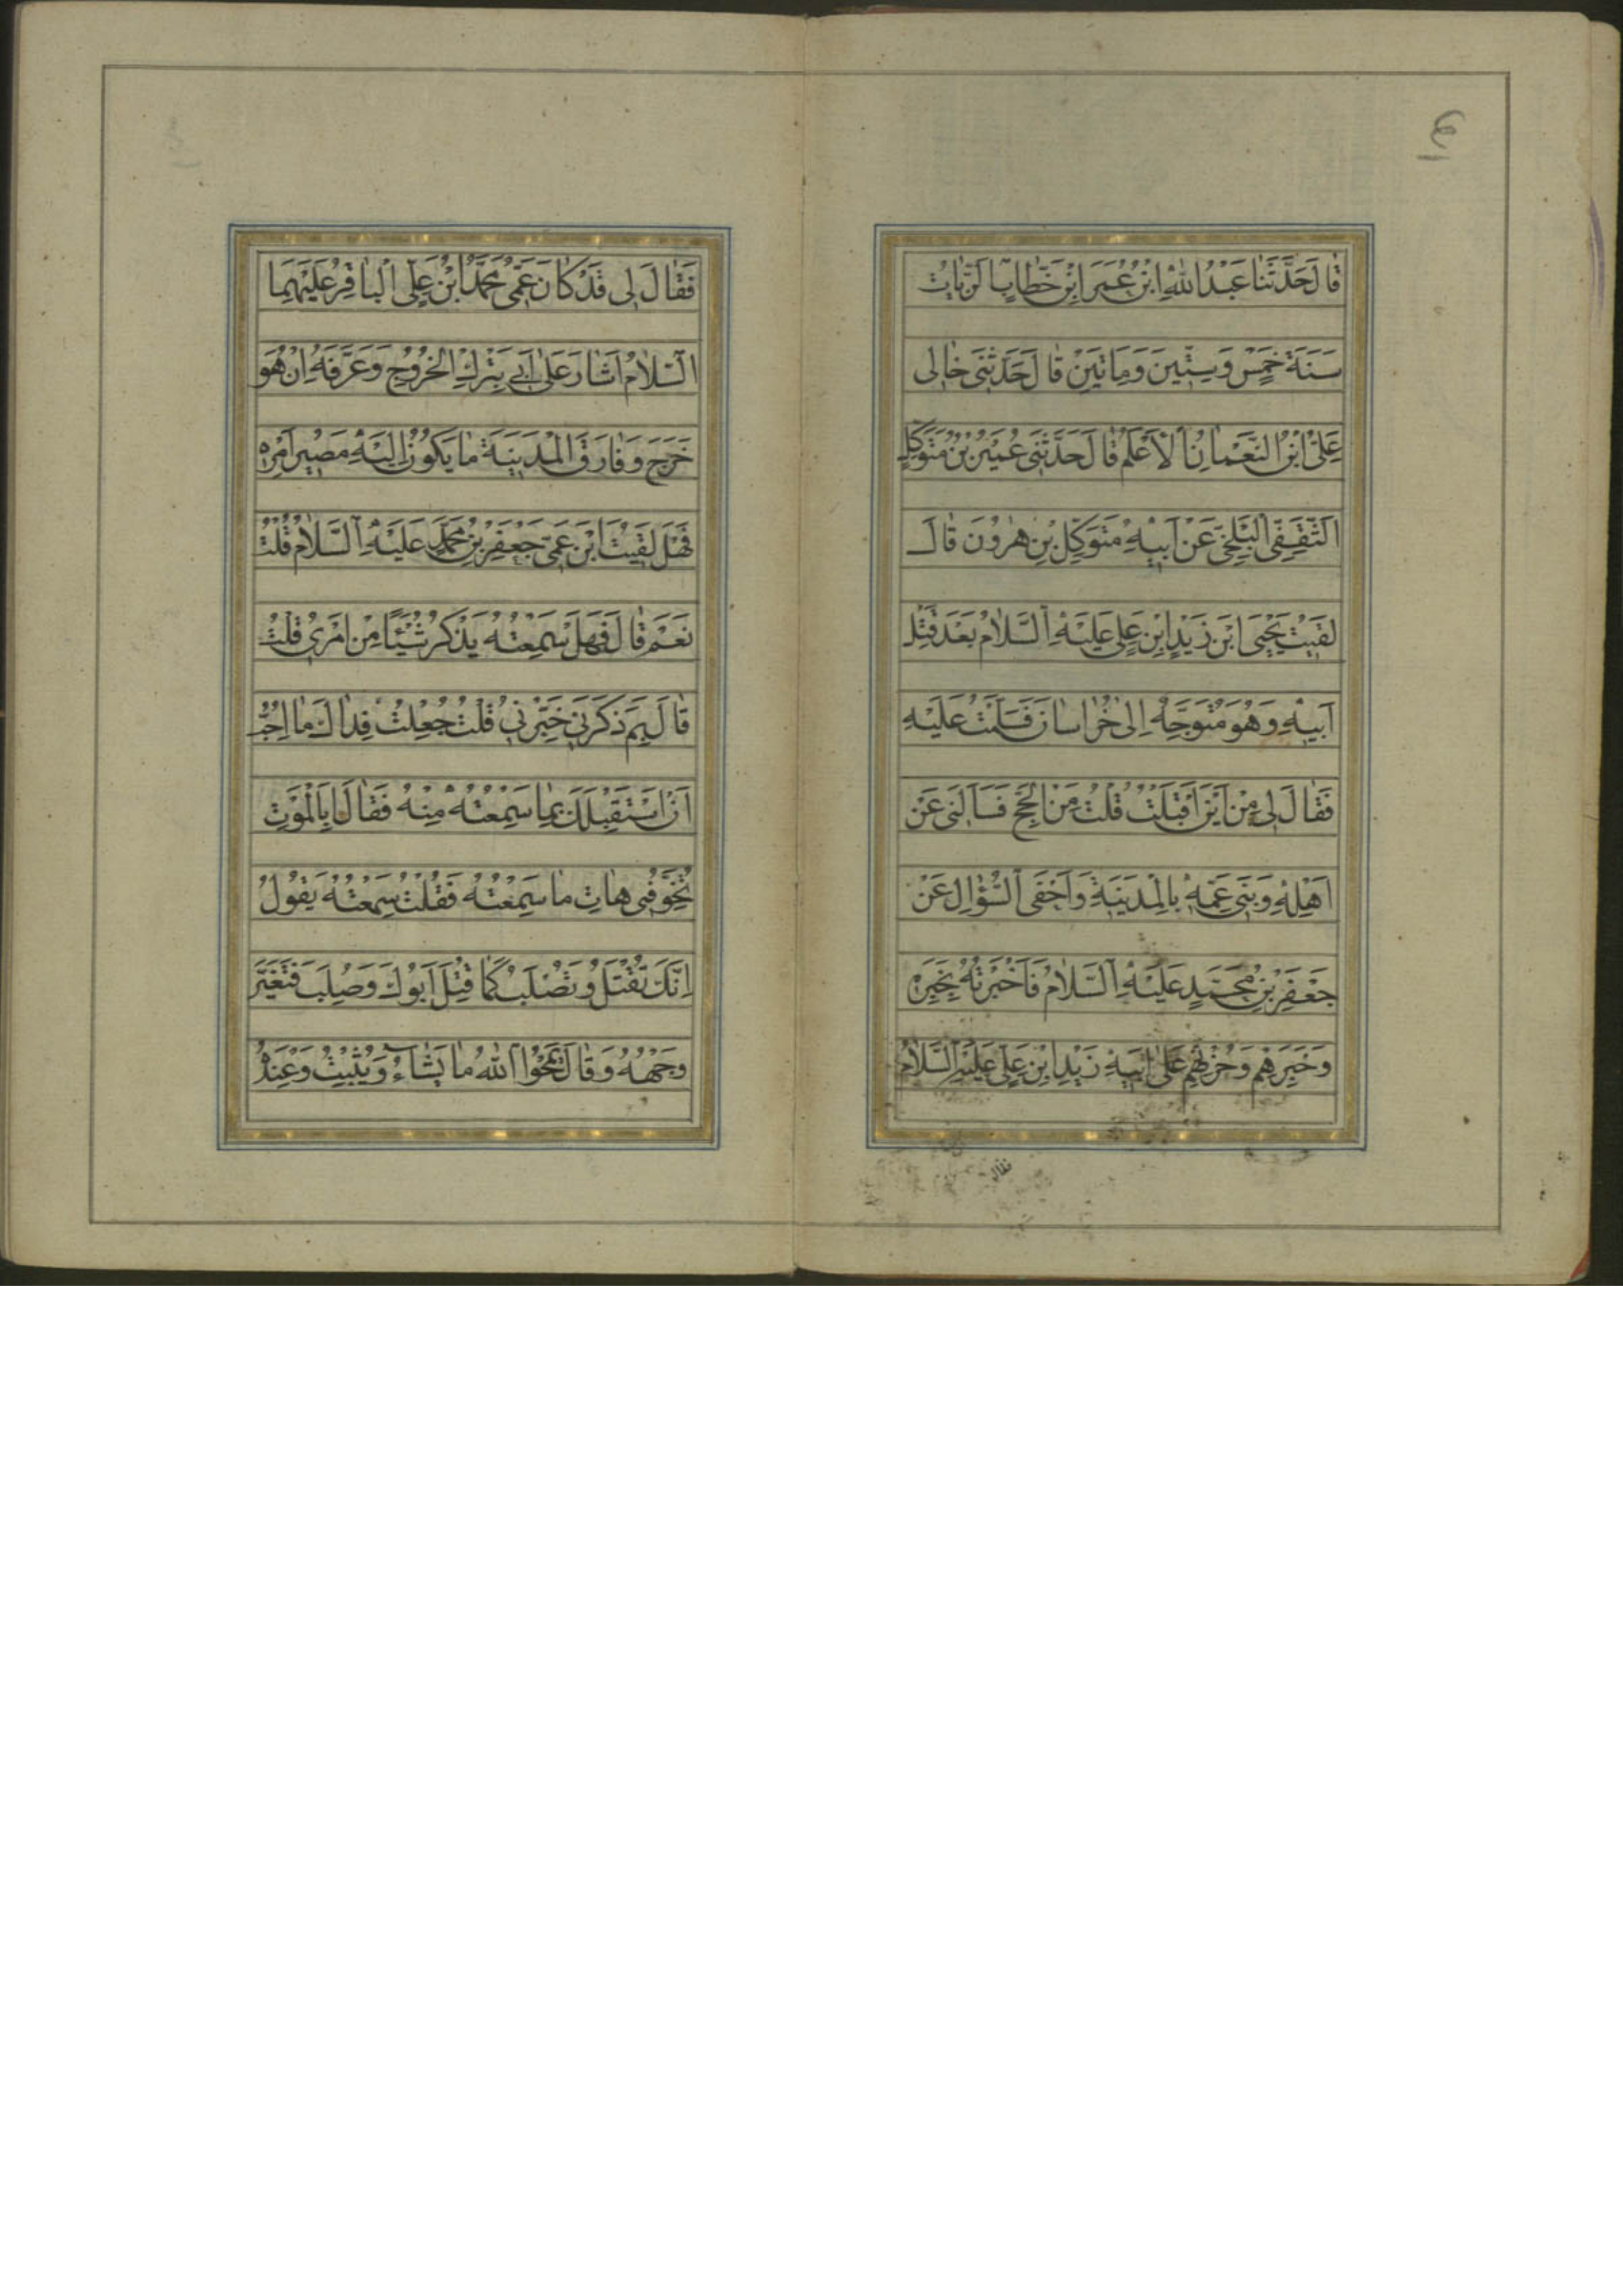 قَالَ حَدَّثَنَا عَبْدُ اللهِ ابْنُ عُمَرَ ابْنِ خَطَّابٍ الزَّيَّاتُ
سَنَةَ خَمْسٍ وَسِتِّينَ وَمِاتَيْنِ قَالَ حَدَّثَنِى خَالِى
عَلِىُّ ابْنُ النُّعْمَانِ الْاَعْلَمُ قَالَ حَدَّثَنِى عُمَيْرُ بْنُ مُتَوَكِّلٍ
الثَّقَفِىُّ الْبَلْخِىُّ عَنْ اَبِيهِ مُتَوَكِّلِ بْنِ هٰرُونَ قَالَ
لَقِيتُ يَحْيَى ابْنَ زَيْدِ ابْنِ عَلِىٍّ عَلَيْهِ السَّلَامُ بَعْدَ قَتْلِ
اَبِيهِ وَهُوَ مُتَوَجِّهٌ اِلىٰ خُرَاسَانَ فَسَلَّمْتُ عَلَيْهِ
فَقَالَ لِى مِنْ اَيْنَ اَقْبَلْتَ قُلْتُ مِنَ الْحَجِّ فَسَاَلَنِى عَنْ
اَهْلِهِ وَبَنِى عَمِّهِ بِالْمَدِينَةِ وَاَحْفَى السُّؤَالَ عَنْ
جَعْفَرِ بْنِ مُحَمَّدٍ عَلَيْهِ السَّلَامُ فَاَخْبَرْتُهُ بِخَبَرِهِ
وَخَبَرِهِمْ وَحُزْنِهِمْ عَلىٰ اَبِيهِ زَيْدِ ابْنِ عَلِىٍّ عَلَيْهِ السَّلَامُ
فقال
فَقَالَ لِى قَدْ كَانَ عَمِّى مُحَمَّدُ ابْنُ عَلِىٍّ الْبَاقِرُ عَلَيْهِمَا
السَّلَامُ اَشَارَ عَلىٰ اَبِى بِتَرْكِ الْخُرُوجِ وَعَرَّفَهُ اِنْ هُوَ
خَرَجَ وَفَارَقَ الْمَدِينَةَ مَا يَكُونُ اِلَيْهِ مَصِيرُ اَمْرِهِ
فَهَلْ لَقِيتَ ابْنَ عَمِّى جَعْفَرَ بْنَ مُحَمَّدٍ عَلَيْهِ السَّلَامُ قُلْتُ
نَعَمْ قَالَ فَهَلْ سَمِعْتَهُ يَذْكُرُ شَيْئًا مِنْ اَمْرِى قُلْتُ
قَالَ بِمَ ذَكَرَنِى خَبِّرْنِى قُلْتُ جُعِلْتُ فِدَاكَ مَا اُحِبُّ
اَنْ اَسْتَقْبِلَكَ بِمَا سَمِعْتُهُ مِنْهُ فَقَالَ اَبِالْمَوْتِ
تُخَوِّفُنِى هَاتِ مَا سَمِعْتَهُ فَقُلْتُ سَمِعْتُهُ يَقُولُ
اِنَّكَ تُقْتَلُ وَتُصْلَبُ كَمَا قُتِلَ اَبُوكَ وَصُلِبَ فَتَغَيَّرَ
وَجْهُهُ وَقَالَ يَمْحُوا اللهُ مَا يَشَاءُ وَيُثْبِتُ وَعِنْدَهُ